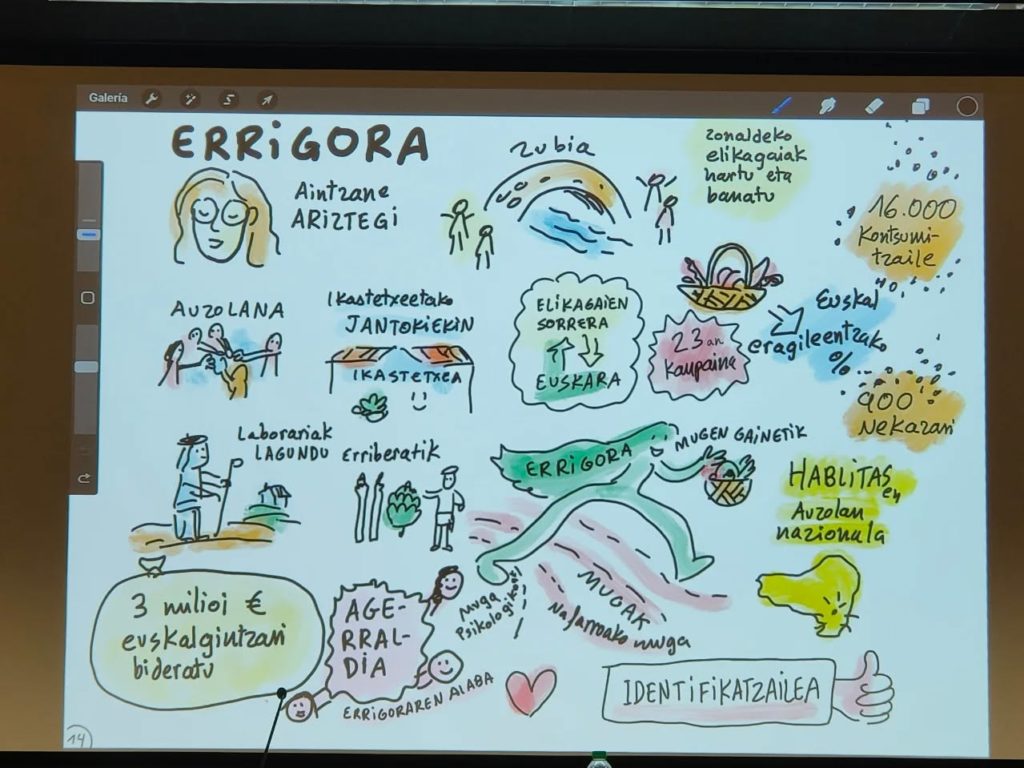 Galería
ERRIGORA
Aintzane
ARIZTEGI
Zubia
Zonaldeko
elikagaiak
hartu eta
banatu
16.000
Kontsumi-
tzaile
AUZOLANA
Ikastetxeetako
JANTOKIEKIN
IKASTETXEA
ELIKAGAIEN
SORRERA
EUSKARA
23an
Kaupaina
Euskal
eragileentzako
%
900
Nekazari
Laborariak
LAGUNDU
Erriberatik
ERRIGORA
MUGEN GAINETIK
HABLITASen
Auzolan
nazionala
3 milioi €
euskalgintzari
bideratu
AGE-
RRAL-
DIA
ERRIGORAREN ALABA
Muga
Psikologikoa
MUGAK
Nafarroako muga
IDENTIFIKATZAILEA
14